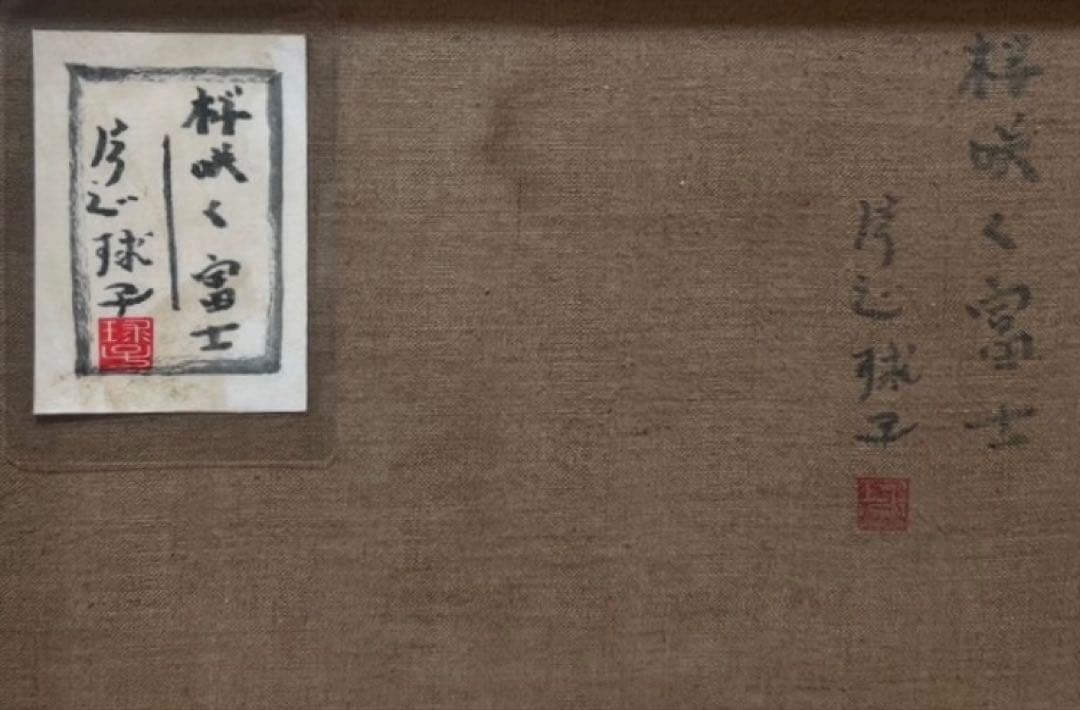 桜咲く富士
片岡球子
球子
桜咲く富士
片岡球子